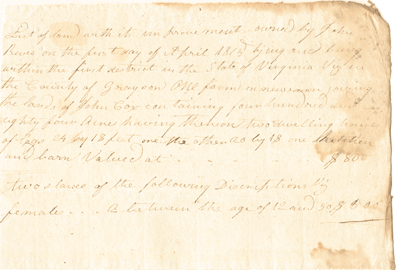 List of land with it improvement owned by John
Reves on the first day of April 1815 lying and being
within the first district in the State of Virginia Viz in
the County of Grayson One farm on newriver joining
the lands of John Cox containing four hundred and
eighty four Acres having thereon two dwelling houses
of logs 24 by 18 feet one the other 20 by 18 one
and barn Valued at $ 800
two slaves of the following Discriptions Viz
females . . . 2 between the age of 12 and 50 $